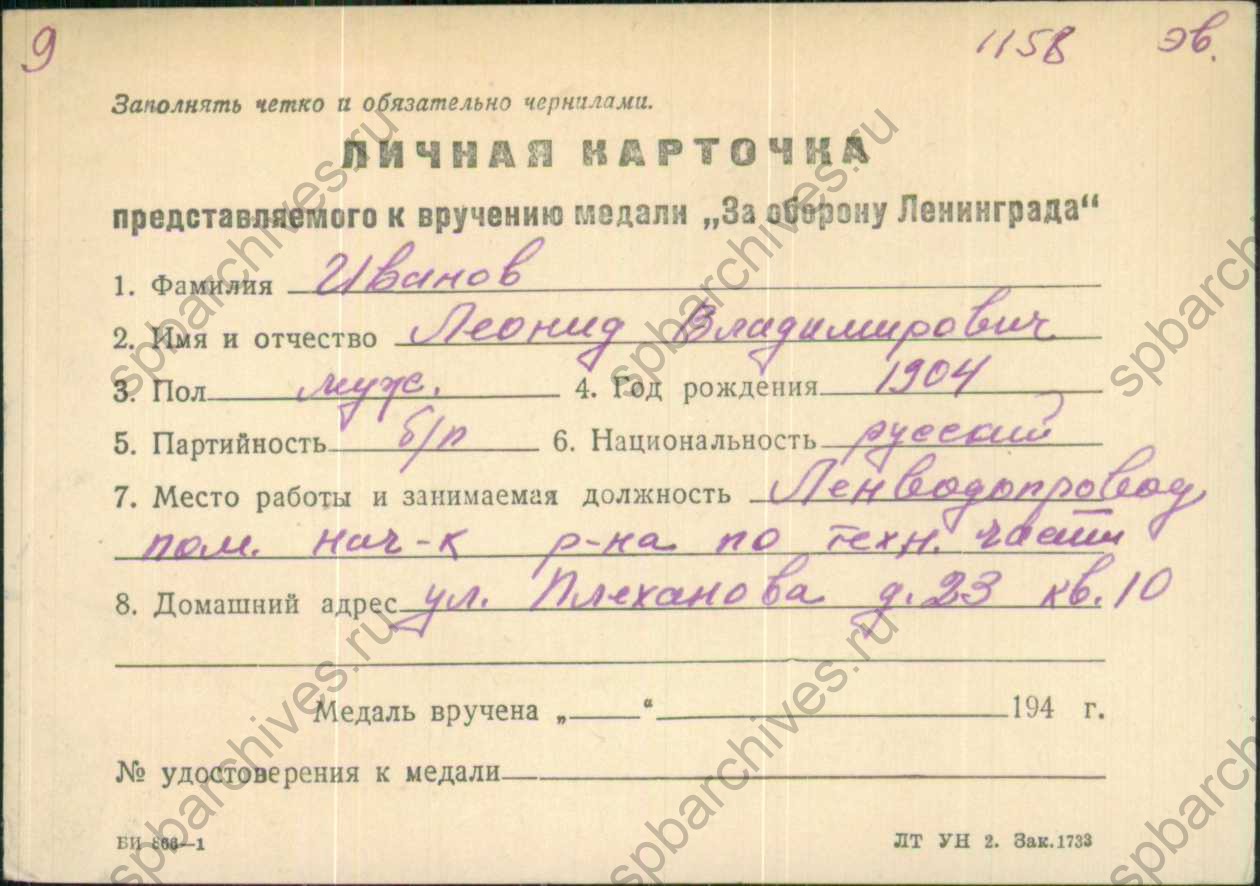 9
1158 эв.
Заполнять четко и обязательно чернилами.
ЛИЧНАЯ КАРТОЧКА
представляемого к вручению медали „За оборону Ленинграда“
1. Фамилия Иванов
2. Имя и отчество Леонид Владимирович
3. Пол муж. 4. Год рождения 1904
5. Партийность б/п 6. Национальность русский
7. Место работы и занимаемая должность Ленводопровод,
пом. нач-к р-на по техн. части
8. Домашний адрес ул. Плеханова д. 23 кв. 10
Медаль вручена „ “ 194 г.
№ удостоверения к медали
БИ 866—1
ЛТ УН 2. Зак. 1733
spbarchives.ru
spbarchives.ru
spbarchives.ru
spbarchives.ru